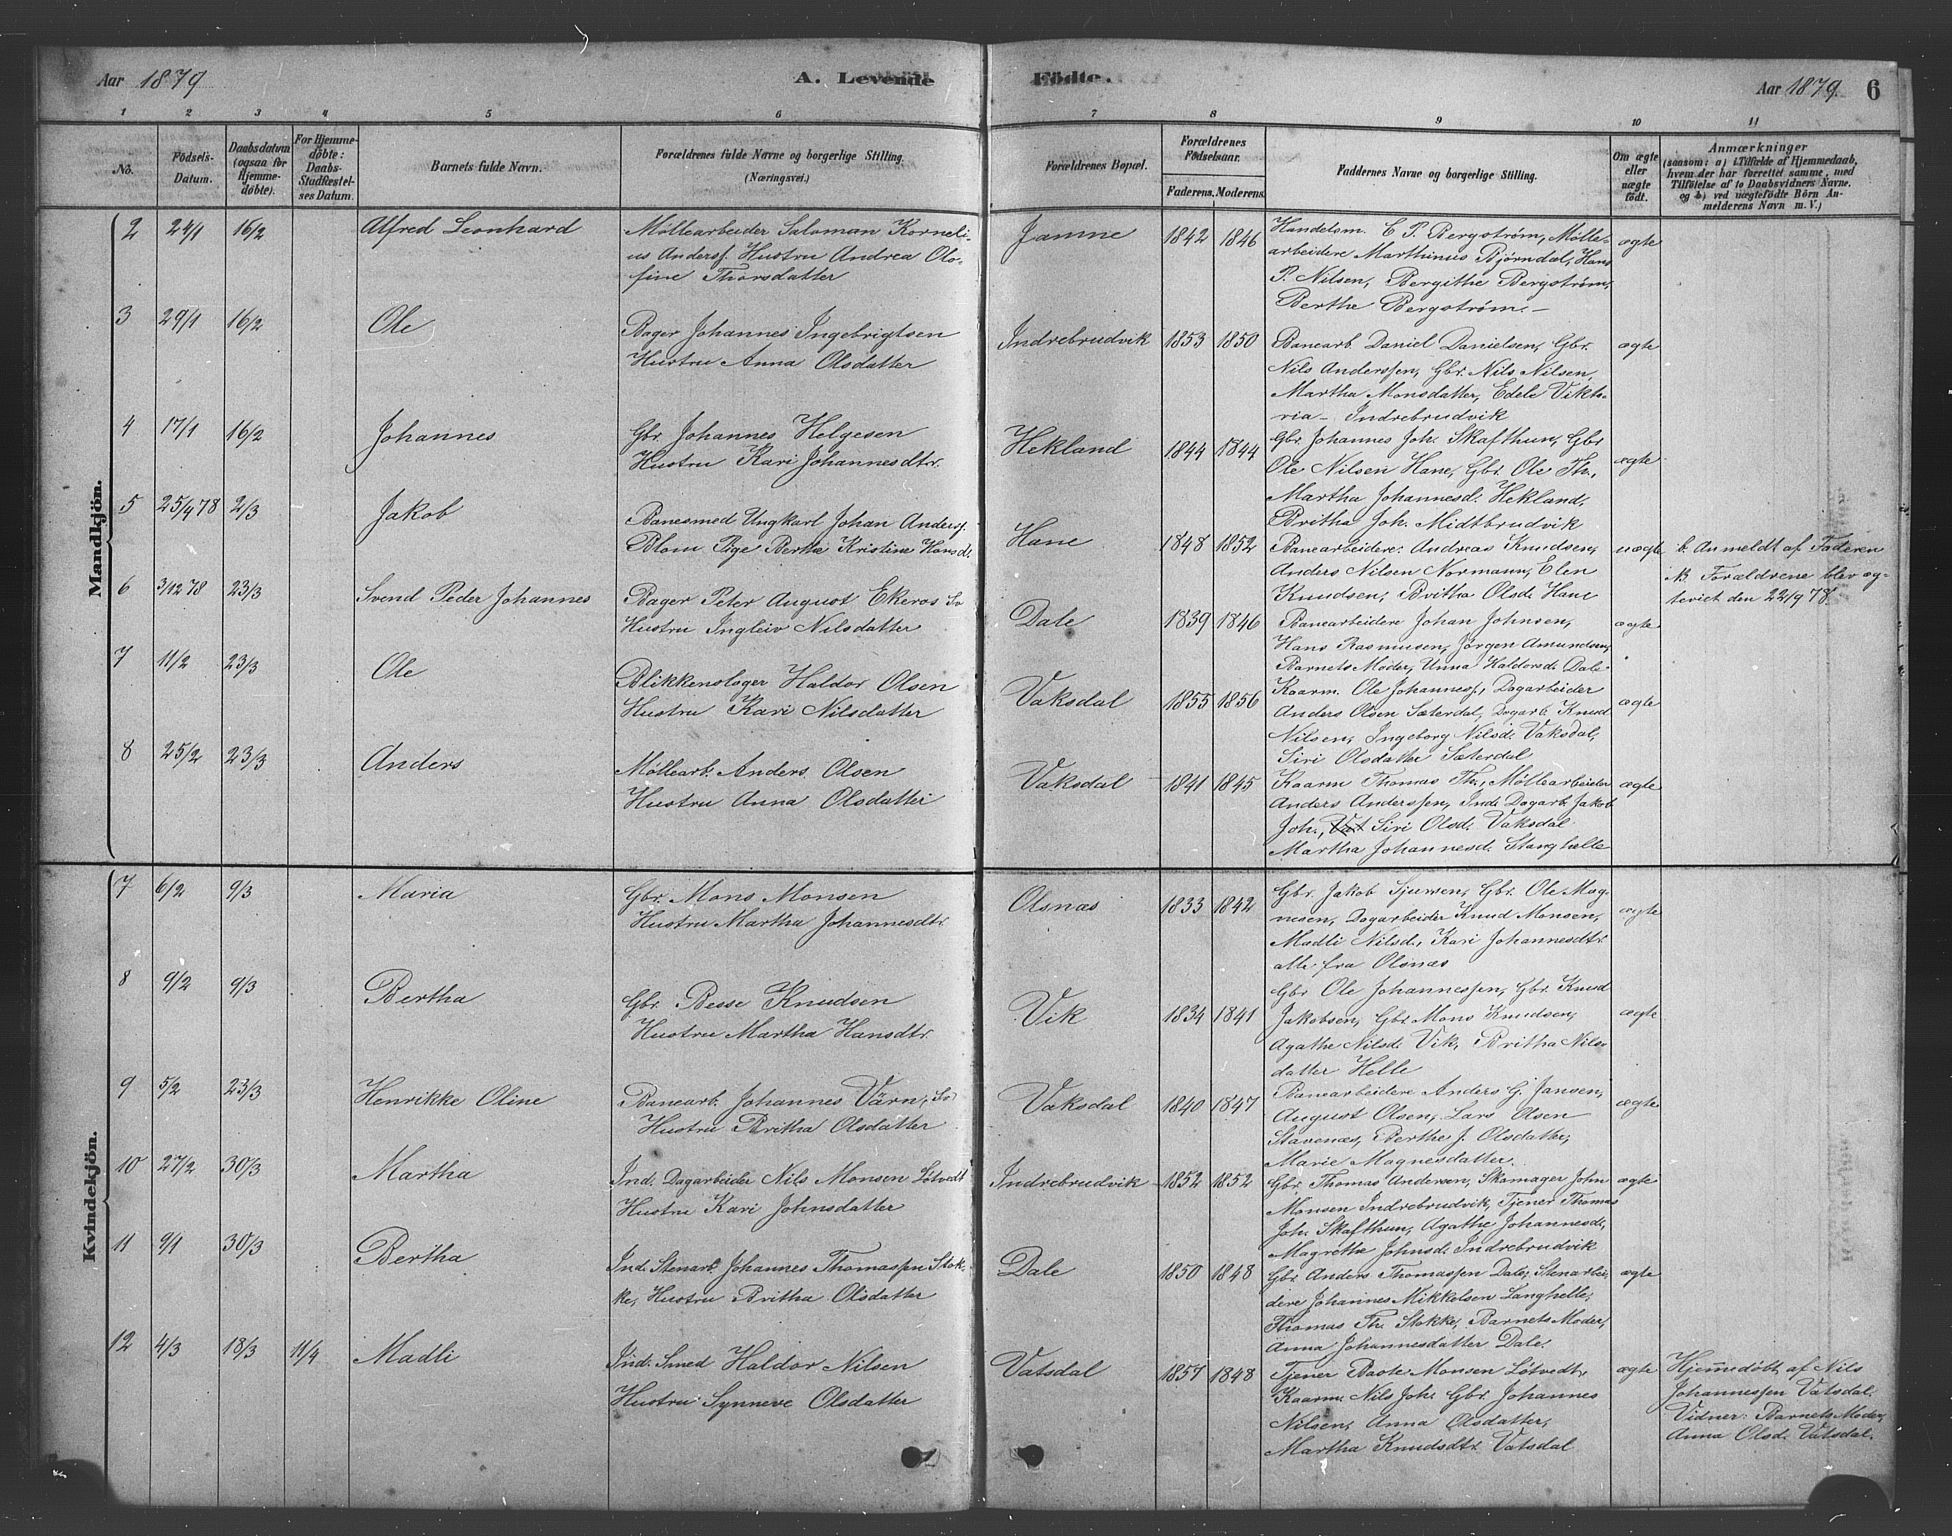 Aar 1879 A. Levende Födte. Aar 1879. 6
1 2 3 4 5 6 7 8 9 10 11
No. Födsels-Datum. Daabsdatum (ogsaa for Hjemmedøbte). For Hjemmedøbte: Daabs-Stadfæstelses Datum. Barnets fulde Navn. Forældrenes fulde Navne og borgerlige Stilling. (Næringsvei.) Forældrenes Bopæl. Forældrenes Födselsaar. Faderens. Moderens. Faddernes Navne og borgerlige Stilling. Om ægte eller uægte födt. Anmærkninger (saasom: a) i Tilfælde af Hjemmedaab, hvem der har forrettet samme, med Tilföielse af to Daabsvidners Navne, og b) ved uægtefödte Börn Anmelderens Navn m. V.)
Mandkjön.
2 24/1 16/2 Alfred Leonhard Møllearbeider Saloman Korneli-
us Andersf. Hustru Andrea Olo-
fine Thorsdatter
Jamne 1842 1846 Handelsm. E P. Bergstrøm, Mølle-
arbeidere Marthinus Bjørndal, Hans
P. Nilsen, Bergithe Bergstrøm,
Berthe Bergstrøm.-
ægte
3 29/1 16/2 Ole Bager Johannes Ingebrigtsen
Hustru Anna Olsdatter
Indrebrudvik 1853 1850 Banearb. Daniel Danielsen, Gbr.
Nils Anderssen, Gbr. Nils Nilsen,
Martha Monsdatter, Edele Vikto-
ria - Indrebrudvik
ægte
4 17/1 16/2 Johannes Gbr. Johannes Helgesen
Hustru Kari Johannesdtr.
Hekland 1844 1844 Gbr. Johannes Joh. Skafthun, Gbr
Ole Nilsen Hane, Gbr. Ole Th.,
Martha Johannesd. Hekland,
Britha Joh. Midtbrudvik
ægte
5 25/9 78 2/3 Jakob Banesmed Ungkarl Johan Andersf.
Blom Pige Berthe Kristine Hansd.
Hane 1848 1852 Banearbeidere Andreas Knudsen,
Anders Nilsen Normann, Elen
Knudsen, Britha Olsd. Hane
uægte b. Anmeldt af Faderen
NB Forældrene blev æg-
teviet den 22/9 78.
6 3/12 78 23/3 Svend Peder Johannes Bager Peter August Ekeros Sv
Hustru Ingleiv Nilsdatter
Dale 1839 1846 Banearbeidere Johan Johnsen,
Hans Rasmusen, Jørgen Amundsen,
Barnets Moder, Unna Haldorsd. Dale
ægte
7 11/2 23/3 Ole Blikkenslager Haldor Olsen
Hustru Kari Nilsdatter
Vaksdal 1855 1856 Kaarm. Ole Johannesf., Dagarbeider
Anders Olsen Sæterdal, Dagarb. Knud
Nilsen, Ingeborg Nilsd. Vaksdal,
Siri Olsdatter Sæterdal
ægte
8 25/2 23/3 Anders Møllearb. Anders Olsen
Hustru Anna Olsdatter
Vaksdal 1841 1845 Kaarm Thomas Th., Møllearbeider
Anders Anderssen, Ind. Dagarb. Jakob
Joh., Siri Olsd. Vaksdal
Martha Johannesd. Stanghelle
ægte
Kvindekjön.
7 6/2 9/3 Maria Gbr. Mons Monsen
Hustru Martha Johannesdtr.
Olsnæs 1833 1842 Gbr. Jakob Sjursen, Gbr. Ole Mag-
nesen, Dagarbeider Knud Monsen,
Madli Nilsd., Kari Johannesdtr.
alle fra Olsnæs
ægte
8 9/2 9/3 Bertha Gbr. Besse Knudsen
Hustru Martha Hansdtr.
Vik 1834 1841 Gbr. Ole Johannessen, Gbr. Knud
Jakobsen, Gbr Mons Knudsen,
Agathe Nilsd. Vik, Britha Nils-
datter Helle
ægte
9 5/2 23/3 Henrikke Oline Banearb. Johannes Värn, Sv
Hustru Britha Olsdatter
Vaksdal 1840 1847 Banearbeidere Anders G. Jansen,
August Olsen, Lars Olsen
Stavenæs, Berthe J. Olsdatter,
Marie Magnesdatter.
ægte
10 27/2 30/3 Martha Ind. Dagarbeider Nils Monsen Løtvedt
Hustru Kari Johnsdatter
Indrebrudvik 1852 1852 Gbr. Thomas Andersen, Skomager John
Monsen Indrebrudvik, Tjener Thomas
Joh. Skafthun, Agathe Johannesd.,
Magretha Johnsd. Indrebrudvik
ægte
11 9/1 30/3 Bertha Ind. Stenarb. Johannes Thomassen Stok-
ke, Hustru Britha Olsdatter
Dale 1850 1848 Gbr. Anders Thomassen Dale, Stenarbei-
dere Johannes Mikkelsen Langhelle,
Thomas Th. Stokke, Barnets Moder,
Anna Johannesdatter Dale.
ægte
12 4/3 18/3 11/4 Madli Ind. Smed Haldor Nilsen
Hustru Synneve Olsdatter
Vatsdal 1857 1848 Tjener Baste Monsen Løtvedt,
Kaarm. Nils Joh. Gbr. Johannes
Nilsen, Anna Olsdatter,
Martha Knudsdtr. Vatsdal
ægte Hjemmedøbt af Nils
Johannessen Vatsdal.
Vidner: Barnets Moder,
Anna Olsd. Vatsdal.